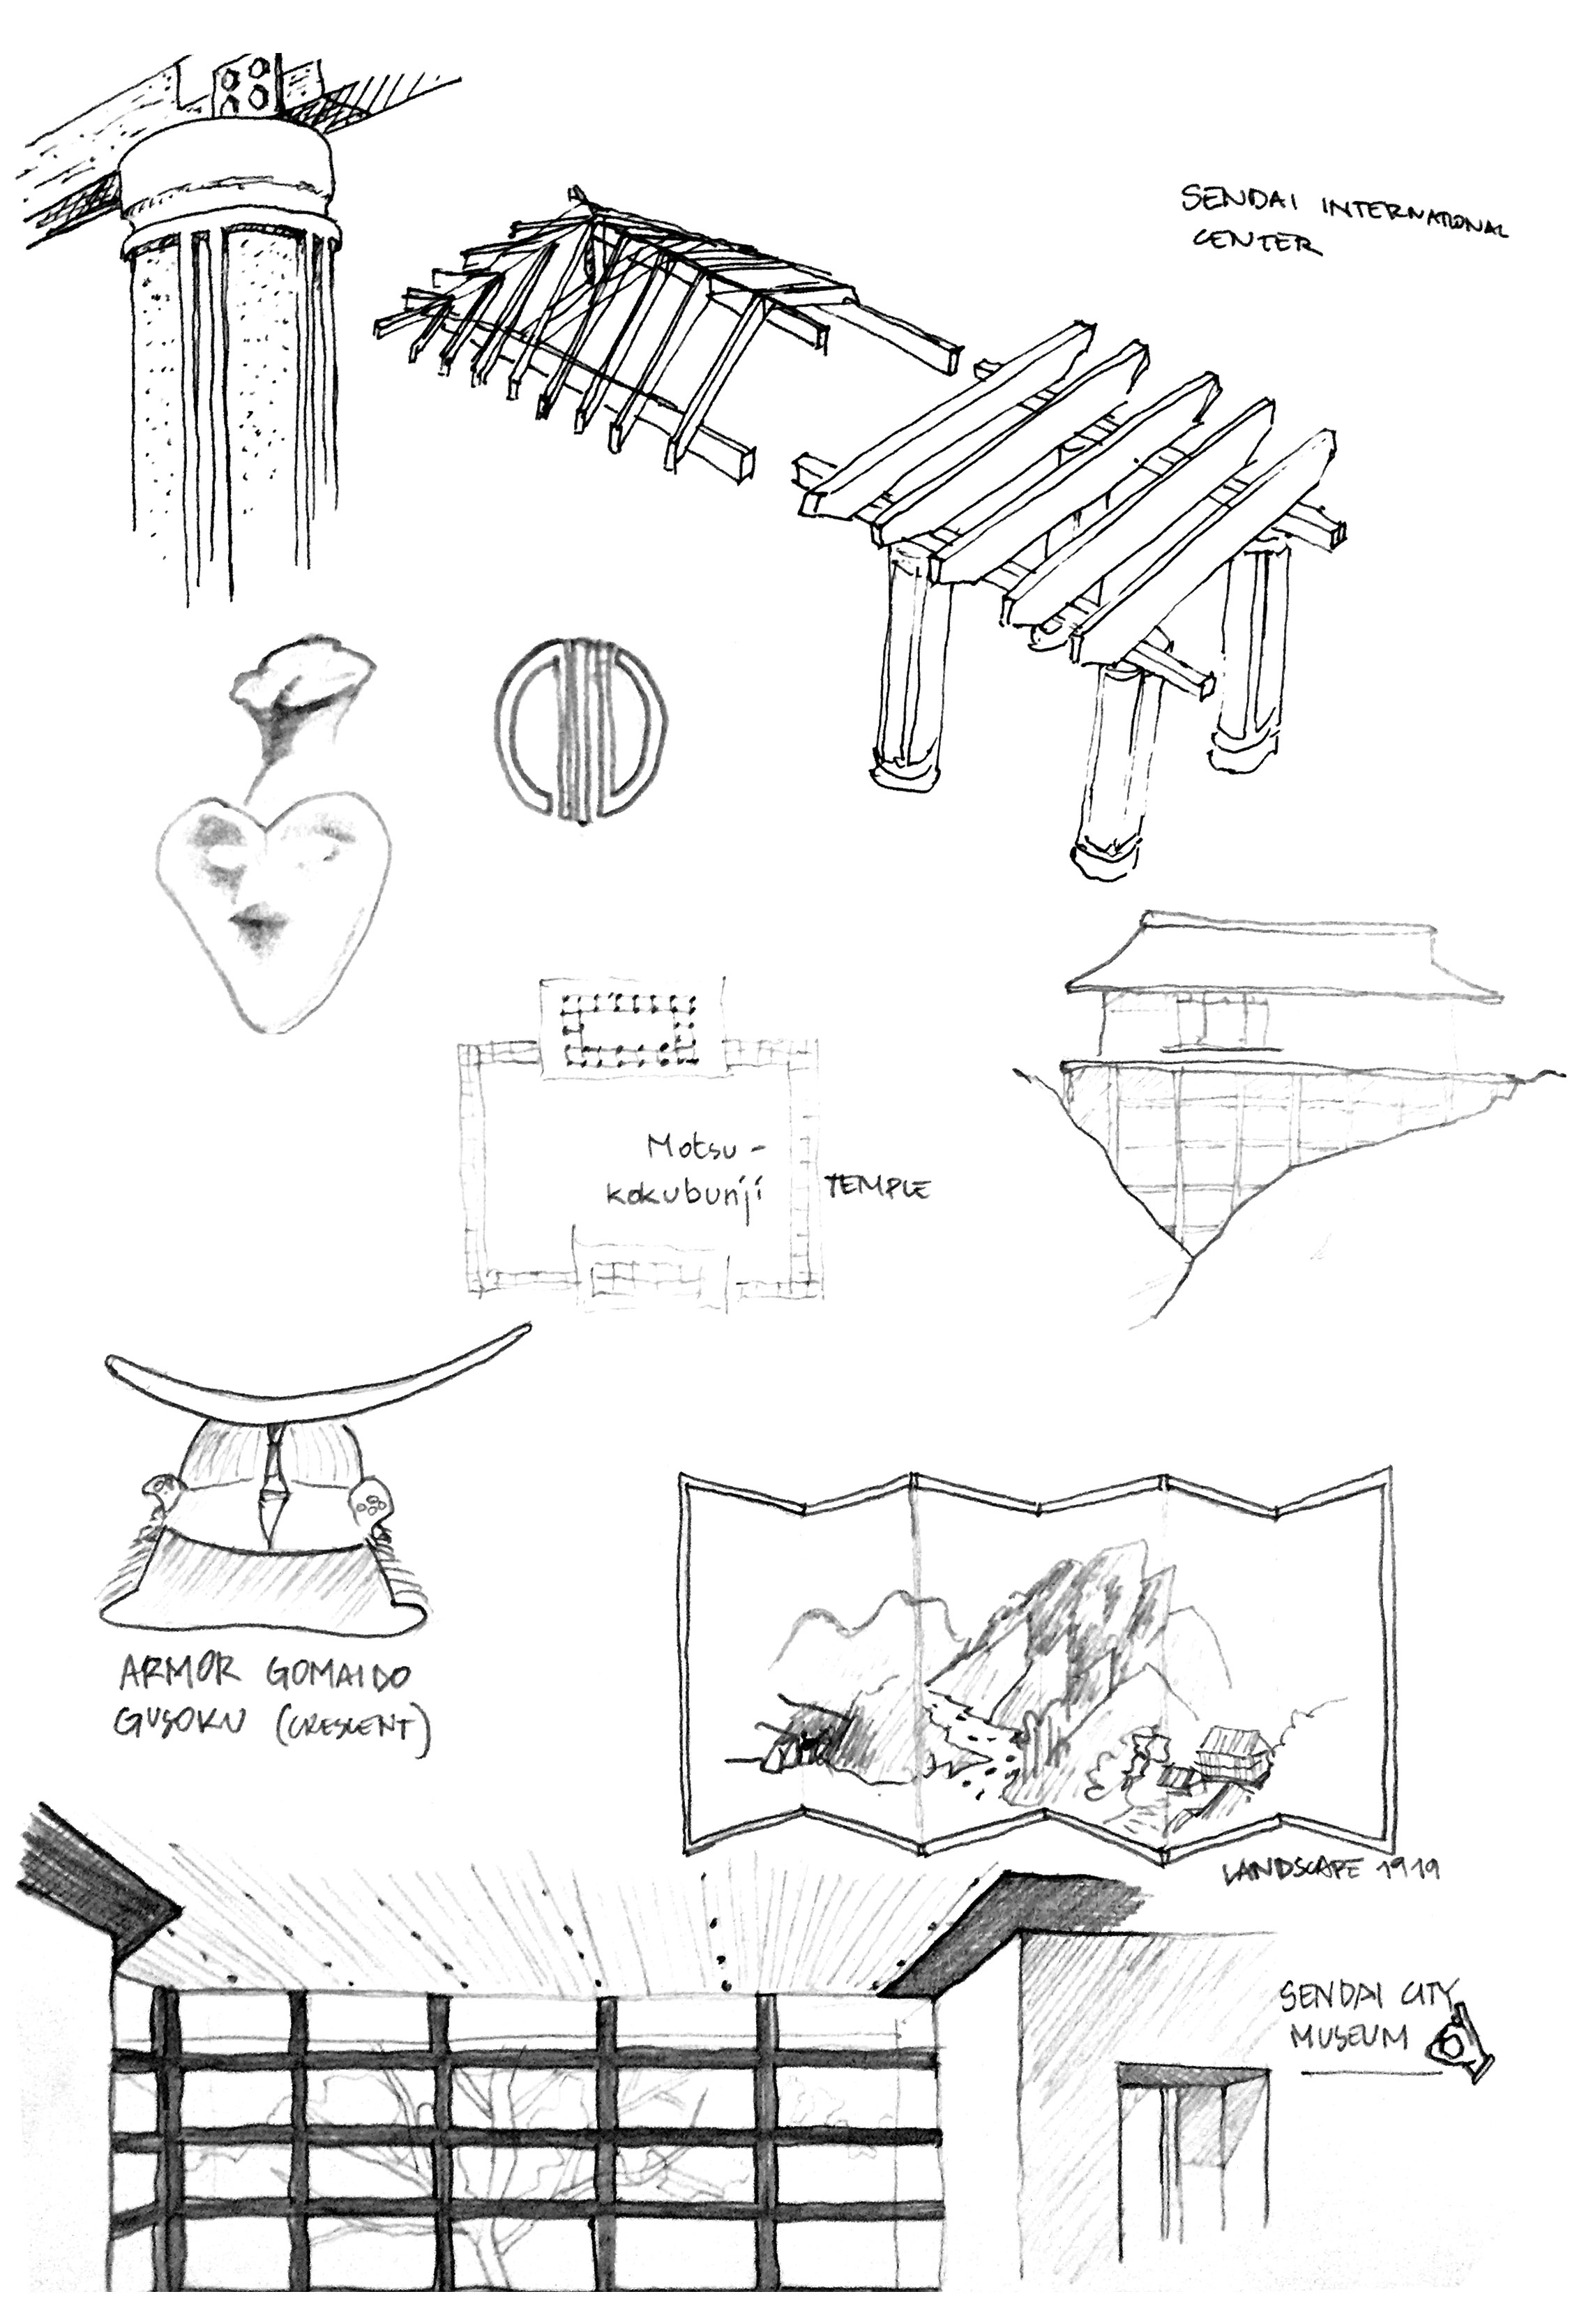 SENDAI INTERNATIONAL
CENTER
Motsu-
kokubunji
TEMPLE
ARMOR GOMAIDO
GUSOKU (CRESCENT)
LANDSCAPE 1919
SENDAI CITY
MUSEUM